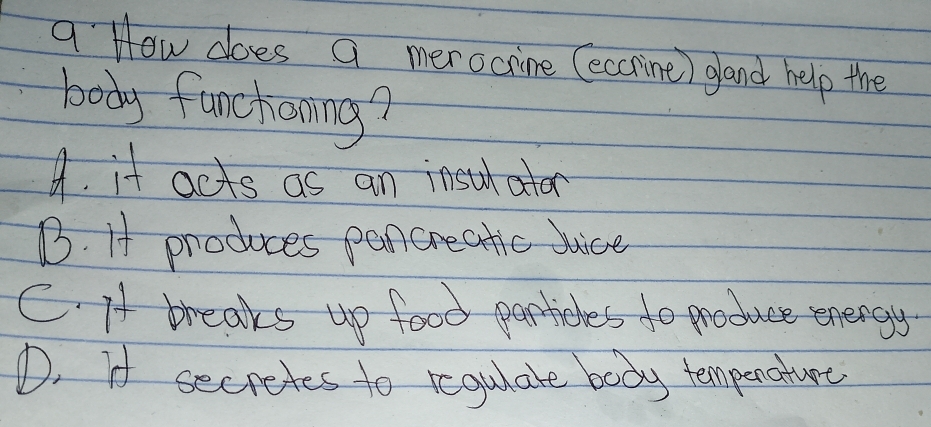 9. How does a merocrine (eccrine) gland help the
body functioning?
A. it acts as an insulator
B. It produces pancreatic Juice
C. It breaks up food particles to produce energy.
D. It secretes to regulate body temperature